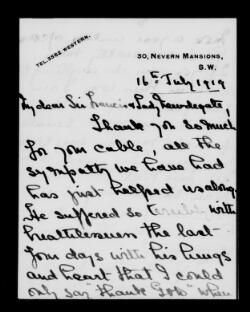 TEL. 3582 WESTERN.
30, NEVERN MANSIONS,
S.W.
16th July 1919
My dear Sir Francis & Lady Newdegate,
Thank you so much
for your cable, all the
sympathy we have had
has just helped us along.
He suffered so terribly with
breathlessness the last
four days with his lungs
and heart that I could
only say "Thank God" when